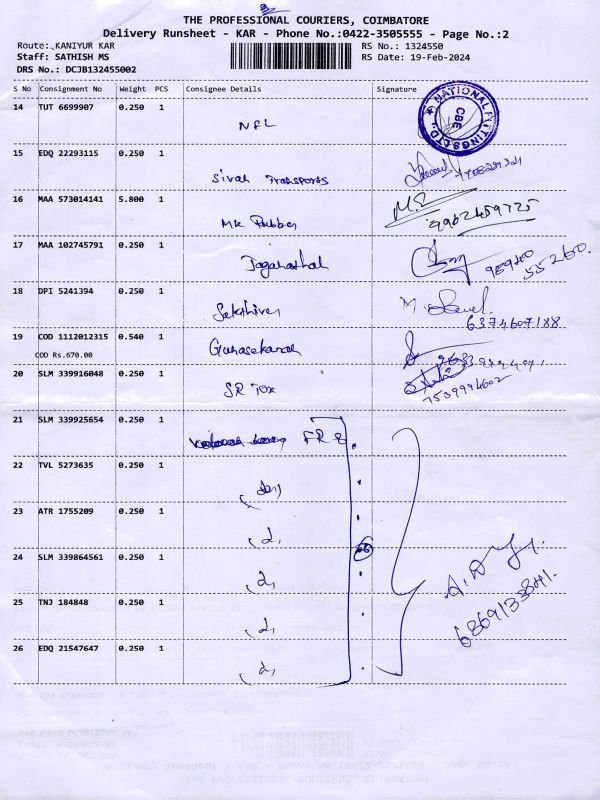 THE PROFESSIONAL COURIERS, COIMBATORE
Delivery Runsheet - KAR - Phone No.:0422-3505555 - Page No.:2
Route: KANIYUR KAR
RS No.: 1324550
Staff: SATHISH MS
RS Date: 19-Feb-2024
DRS No.: DCJB132455002
S No Consignment No Weight PCS Consignee Details Signature
14 TUT 6699907 0.250 1
NFL
NATIONAL FITTINGS LTD
CBE
15 EDQ 22293115 0.250 1
Sivan Transports
16 MAA 573014141 5.800 1
MK Rubber
9962459725
17 MAA 102745791 0.250 1
95940
55260.
18 DPI 5241394 0.250 1
Sakthivel
6374607188
19 COD 1112012315 0.540 1
COD Rs.670.00
Gunasekaran
20 SLM 339916048 0.250 1
SR Tex
7539994602
21 SLM 339925654 0.250 1
22 TVL 5273635 0.250 1
23 ATR 1755209 0.250 1
24 SLM 339864561 0.250 1
25 TNJ 184848 0.250 1
26 EDQ 21547647 0.250 1